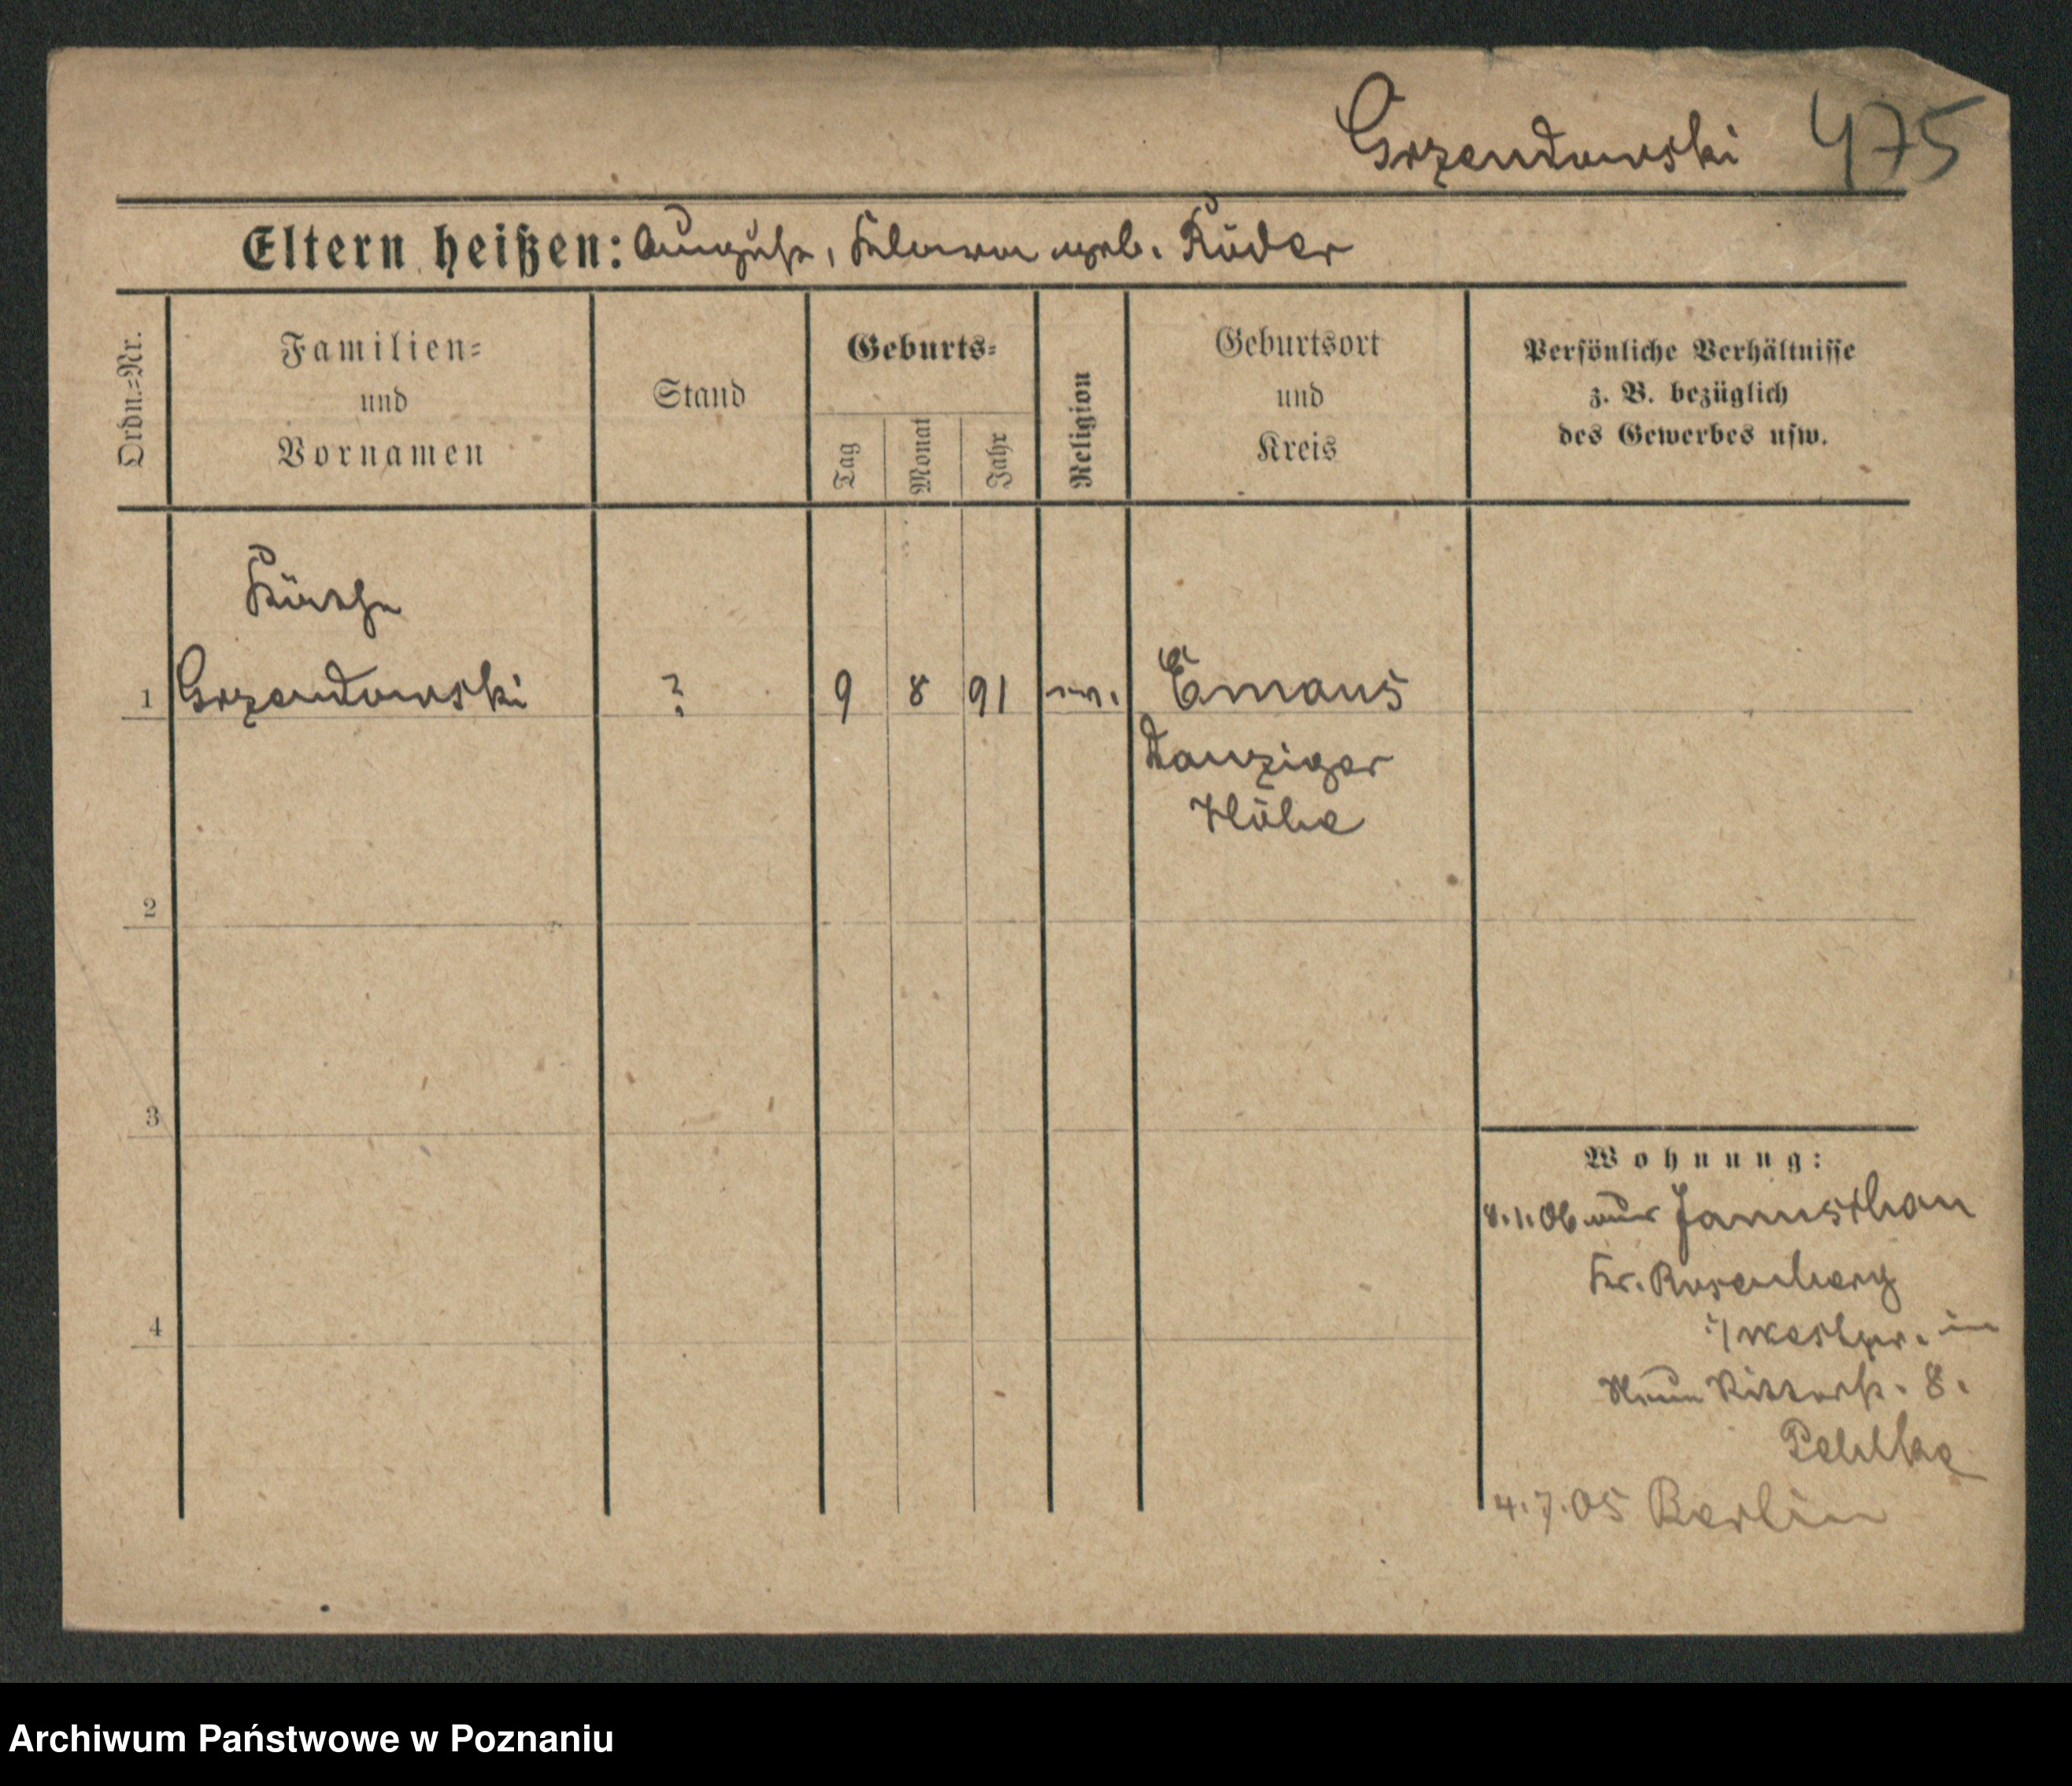 Grzendowski 475
Eltern heißen: August, Klara geb. Röder
Ordn.=Nr.
Familien=
und
Vornamen
Stand
Geburts=
Tag
Monat
Jahr
Religion
Geburtsort
und
Kreis
Persönliche Verhältnisse
z. B. bezüglich
des Gewerbes usw.
Käthe
1 Grzendowski ? 9 8 91 ev. Emaus
Danziger
Höhe
2
3
4
Wohnung:
8.1.06 aus
Kr. Rosenberg
i/Westpr. in
Neue Ritterstr. 8.
4.7.05 Berlin
Archiwum Państwowe w Poznaniu